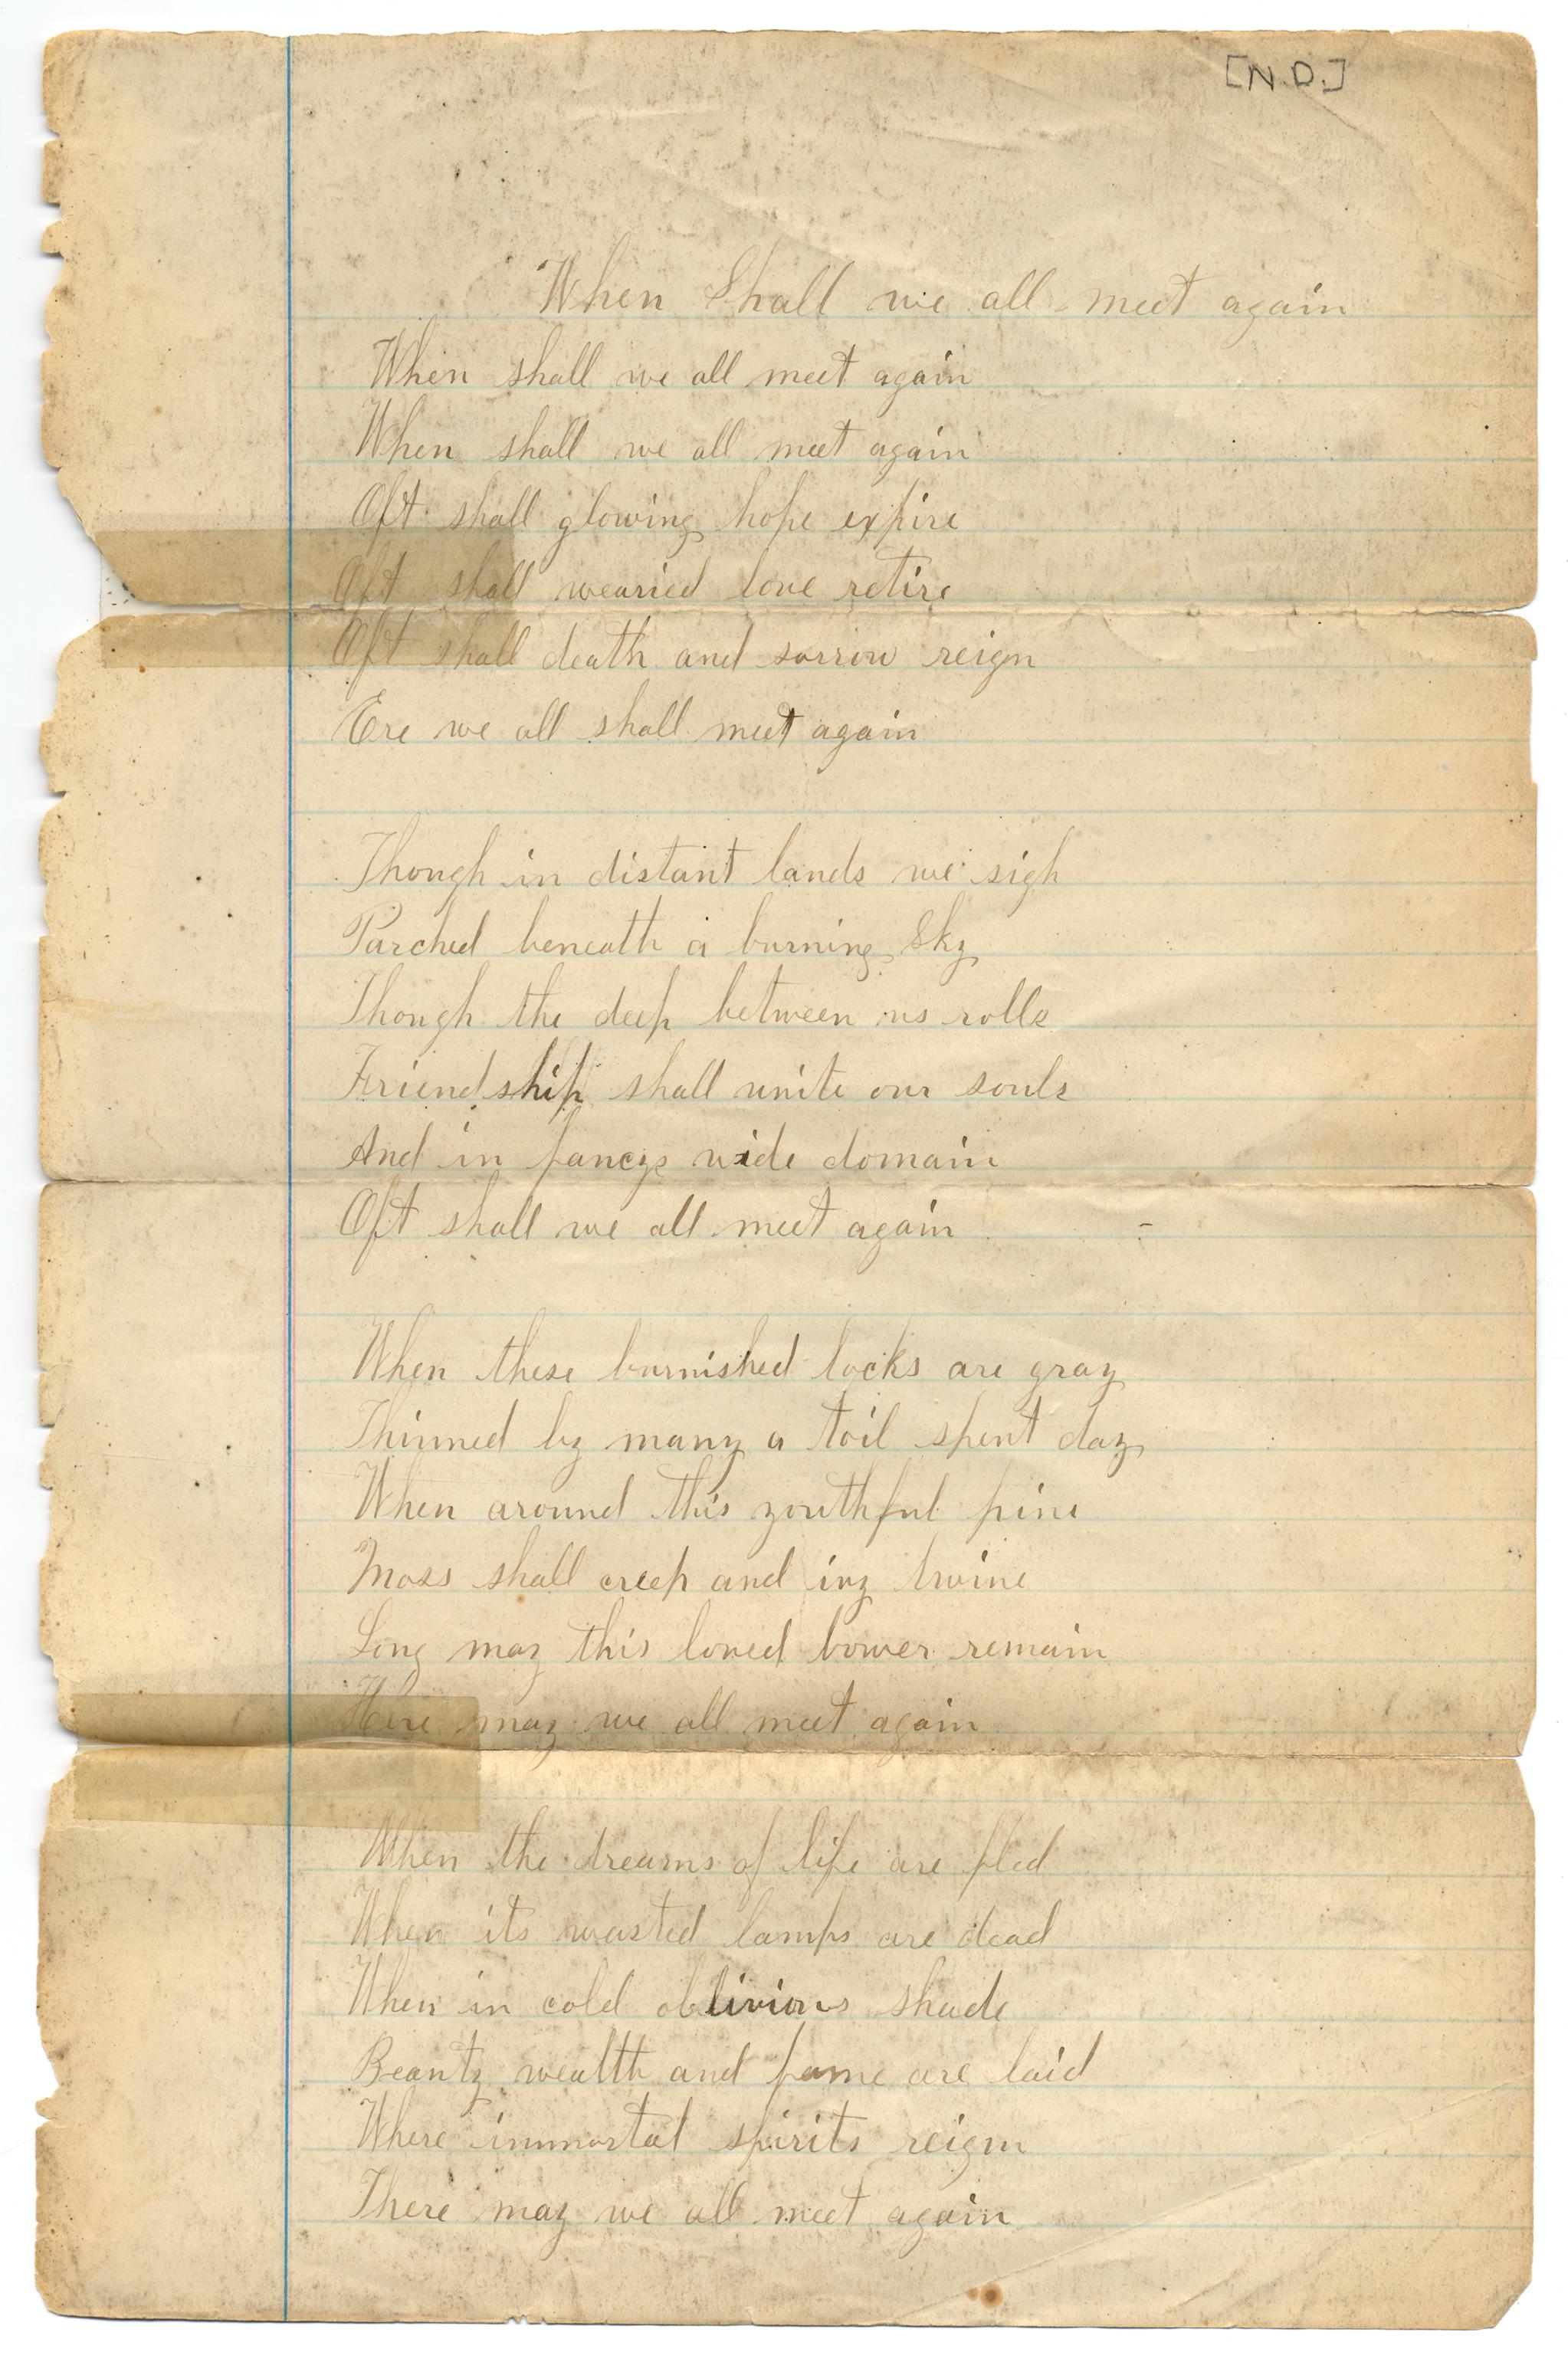 [N.D.]
When Shall we all meet again
When shall we all meet again
When shall we all meet again
Oft shall glowing hope expire
Oft shall wearied love retire
Oft shall death and sorrow reign
Ere we all shall meet again
Though in distant lands we sigh
Parched beneath a burning Sky
Though the deep between us rolls
Friendship shall unite our souls
And in fancys wide domain
Oft shall we all meet again
When these burnished locks are gray
Thinned by many a toil spent day
When around this youthful pine
Moss shall creep and ivy twine
Long may this loved bower remain
Here may we all meet again
When the dreams of life are fled
When its wasted lamps are dead
When in cold oblivions shade
Beauty wealth and fame are laid
Where immortal spirits reign
There may we all meet again